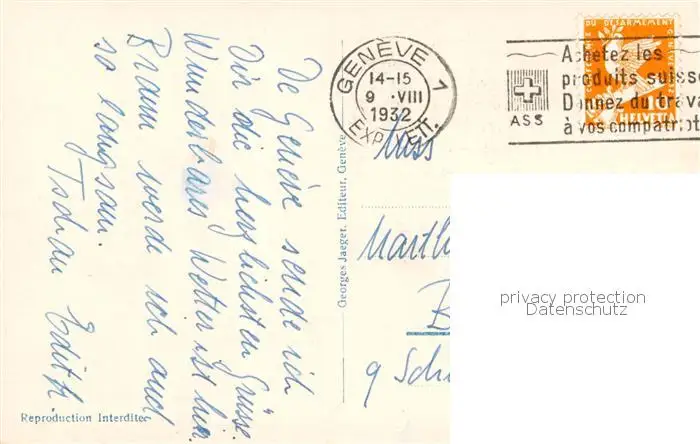 De Genève sende ich
Dir die herzlichsten Grüsse.
Wunderbares Wetter ist hier.
Braun werde ich auch
so langsam.
Tschau Edith.
Reproduction Interdite
Georges Jaeger, Editeur, Genève
GENÈVE 1
14-15
9. VIII
1932
EXP. LETT.
DU DÉSARMEMENT
10
HELVETIA
ASS
Achetez les
produits suisse
Donnez du trava
à vos compatriot
Miss
Marth
B
9 Sch
privacy protection
Datenschutz